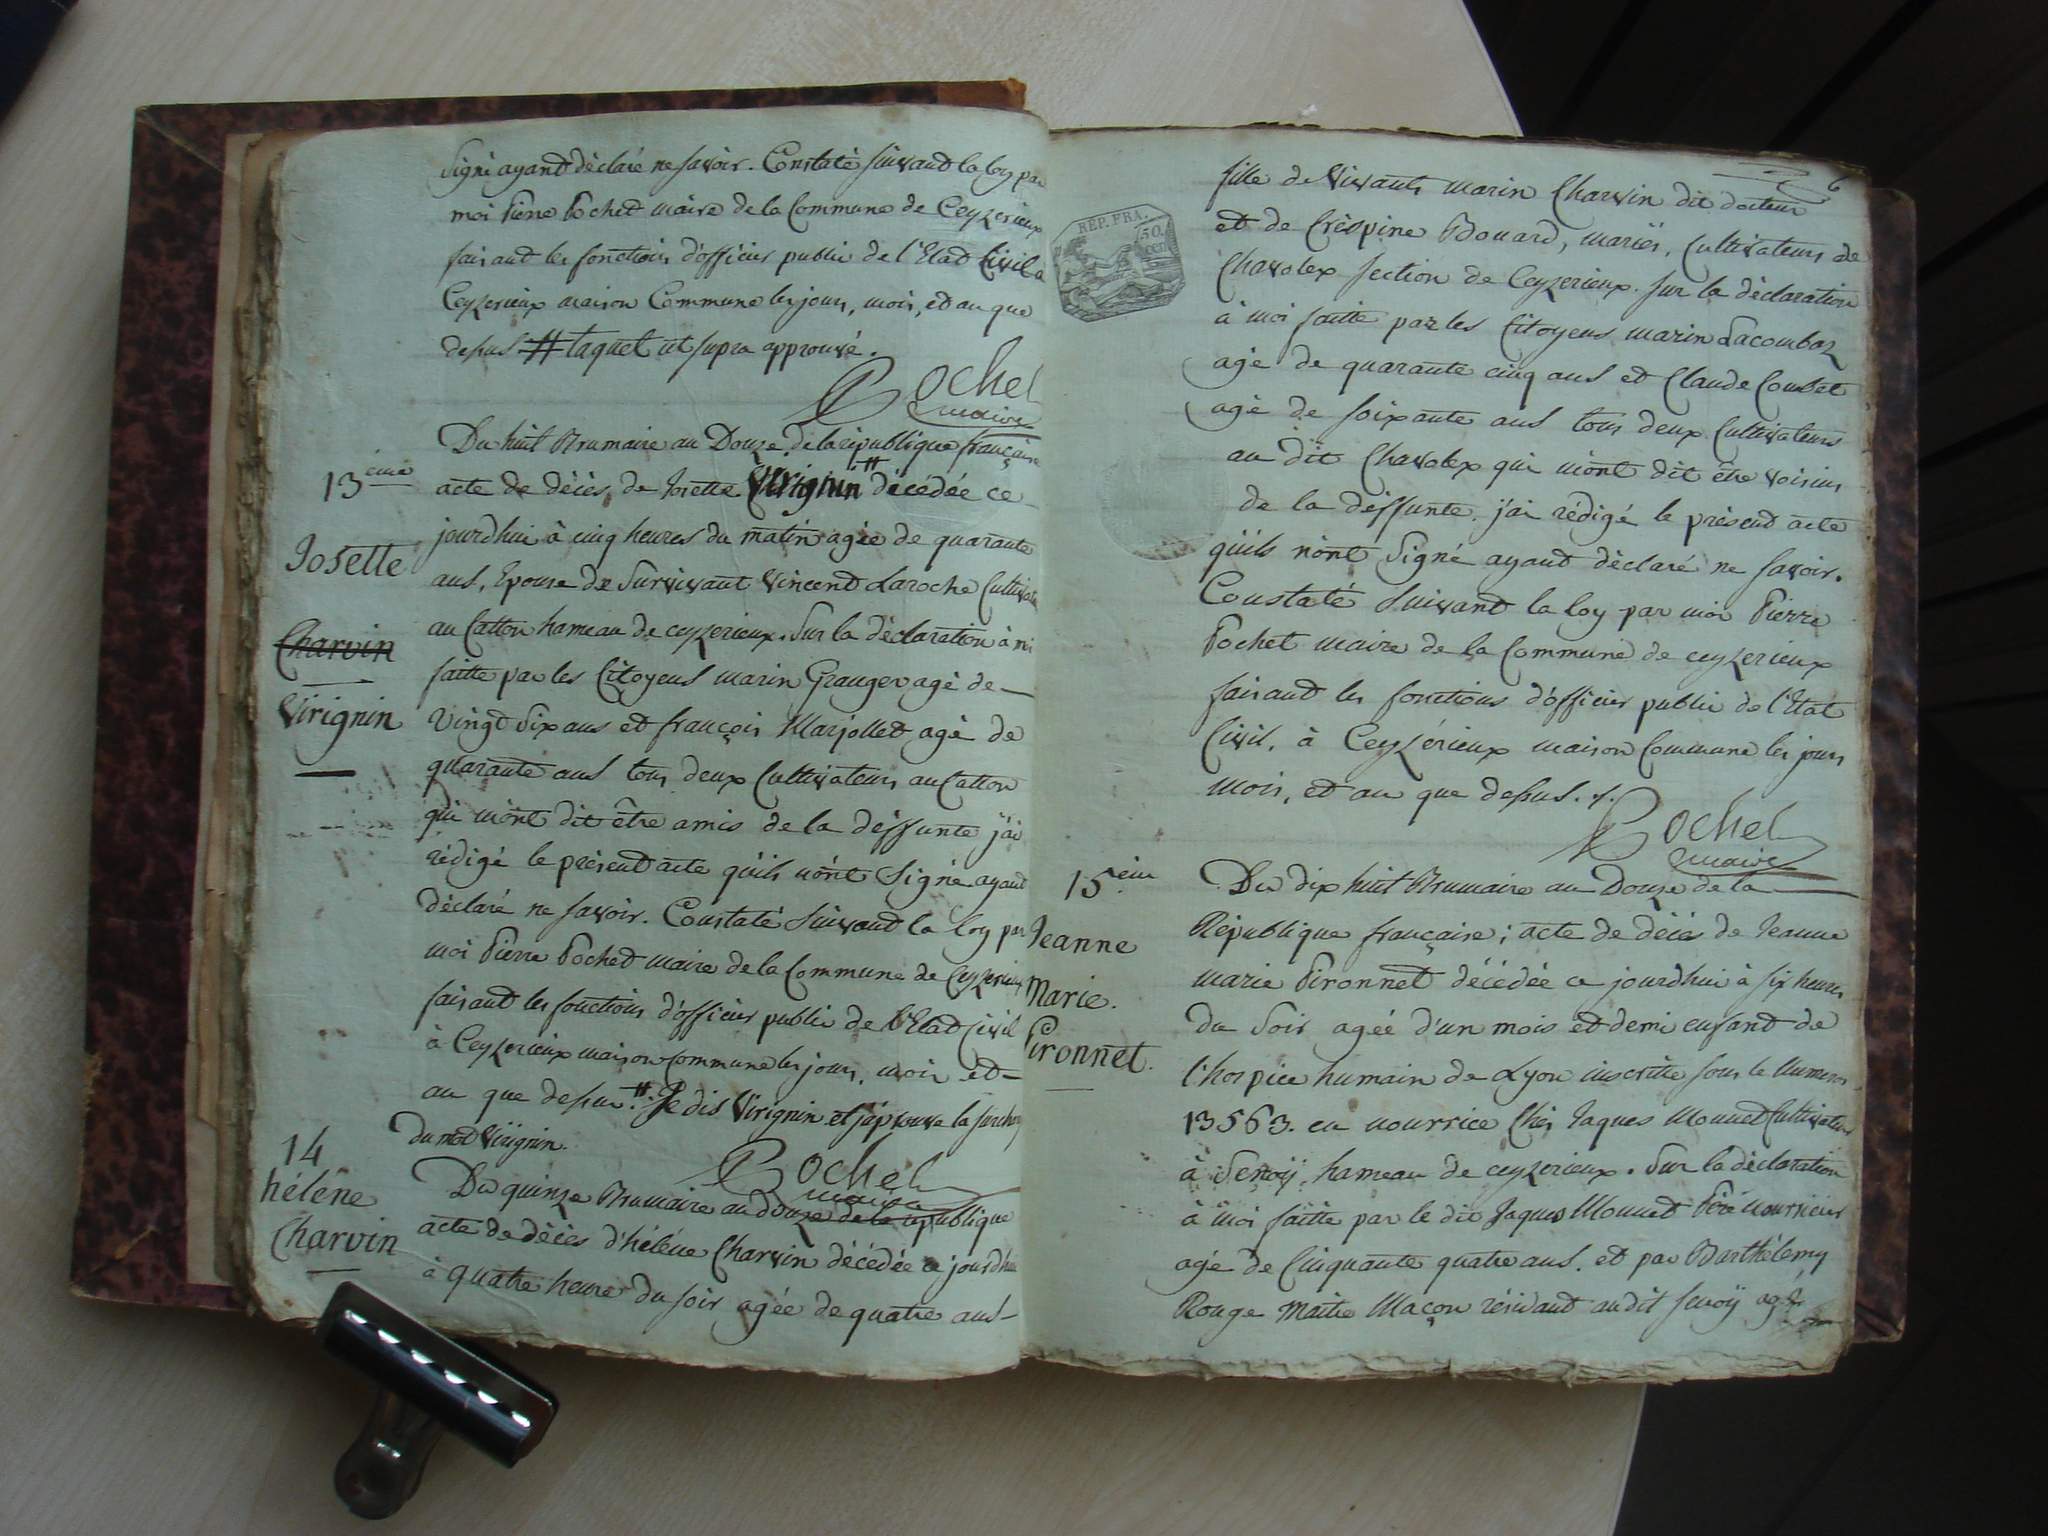 Signé ayant déclaré ne savoir. Constaté suivant la loy par
moi Pierre Pochet maire de la Commune de Ceyzerieux
faisant les fonctions d'officier public de l'Etat Civil a
Ceyzerieux maison Commune les jours, mois, et an que
dessus # taquet ut supra approuvé.
Pochet
maire
13ème
Josette
Charvin
Virignin
Du huit Brumaire an Douze de la république française
acte de décès de Josette Virignin # décédée ce
jourdhui à cinq heures du matin agée de quarante
ans, Epouse de Survivant Vincent Laroche Cultivate
au Catton hameau de ceyzerieux. Sur la déclaration à moi
faitte par les Citoyens marin Granger agé de
vingt Six ans et françois Marjollet agé de
quarante ans tous deux Cultivateurs au Catton
qui m'ont dit être amis de la déffunte j'ai
rédigé le présent acte qu'ils n'ont Signé ayant
déclaré ne savoir. Constaté Suivant la loy par
moi Pierre Pochet maire de la Commune de Ceyzerieux
faisant les fonctions d'officier public de l'Etat Civil
à Ceyzerieux maison commune les jours, mois et
an que dessus. # Je dis Virignin et j'approuve la surcharge
du mot Virignin.
Pochet
maire
14
hélène
Charvin
Du quinze Brumaire an douze de la république
acte de décès d'hélène Charvin décédée ce jourdhui
à quatre heure du soir agée de quatre ans
6
REP. FRA.
50.
cen
fille de Vivants marin Charvin dit docteur
et de Crèspine Bouard, mariés, Cultivateurs de
Chavolex section de Ceyzerieux. sur la déclaration
à moi faitte par les Citoyens marin Lacombaz
agé de quarante cinq ans et Claude Coubet
agé de soixante ans tous deux Cultivateurs
au dit Chavolex qui m'ont dit être voisins
de la déffunte. j'ai rédigé le présent acte
qu'ils n'ont Signé ayant déclaré ne savoir.
Constaté Suivant la loy par moi Pierre
Pochet maire de la Commune de ceyzerieux
faisant les fonctions d'officier public de l'Etat
Civil, à Ceyzérieux maison Commune les jours
mois, et an que dessus. ./.
Pochet
maire
15ème
Jeanne
Marie.
Pironnet.
Du dix huit Brumaire an Douze de la
République française; acte de décès de Jeanne
marie Pironnet décédée ce jourdhui à six heures
du Soir agée d'un mois et demi enfant de
l'hospice humain de Lyon inscritte sous le Numéros
13563. en nourrice Chés Jaques Monnet Cultivateur
à Senoÿ hameau de ceyzerieux. Sur la déclaration
à moi faitte par le dit Jaques Monnet Père Nourricier
agé de Cinquante quatre ans. et par Barthélemy
Rouge Maitre Maçon résidant audit senoÿ agé